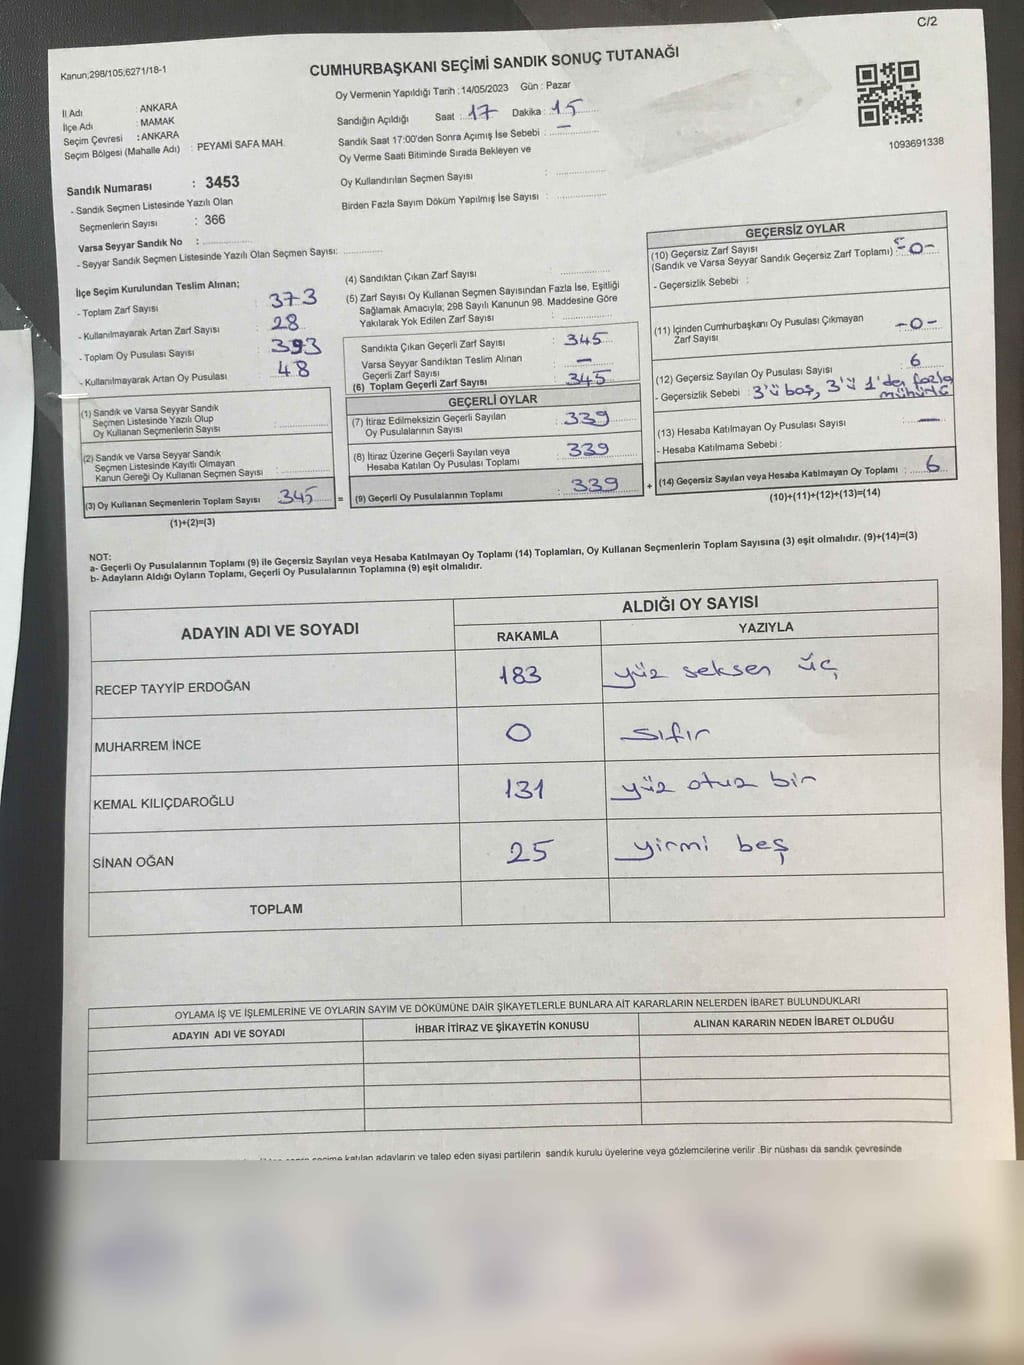 C/2
Kanun;298/105;6271/18-1
CUMHURBAŞKANI SEÇİMİ SANDIK SONUÇ TUTANAĞI
Oy Vermenin Yapıldığı Tarih : 14/05/2023 Gün : Pazar
İl Adı : ANKARA
İlçe Adı : MAMAK
Seçim Çevresi : ANKARA
Seçim Bölgesi (Mahalle Adı) : PEYAMİ SAFA MAH.
Sandığın Açıldığı Saat : 17 Dakika : 15
Sandık Saat 17:00'den Sonra Açımış İse Sebebi : —
Oy Verme Saati Bitiminde Sırada Bekleyen ve
Oy Kullandırılan Seçmen Sayısı :
Birden Fazla Sayım Döküm Yapılmış İse Sayısı :
1093691338
Sandık Numarası : 3453
- Sandık Seçmen Listesinde Yazılı Olan
Seçmenlerin Sayısı : 366
Varsa Seyyar Sandık No :
- Seyyar Sandık Seçmen Listesinde Yazılı Olan Seçmen Sayısı:
İlçe Seçim Kurulundan Teslim Alınan;
- Toplam Zarf Sayısı : 373
- Kullanılmayarak Artan Zarf Sayısı : 28
- Toplam Oy Pusulası Sayısı : 393
- Kullanılmayarak Artan Oy Pusulası : 48
(1) Sandık ve Varsa Seyyar Sandık
Seçmen Listesinde Yazılı Olup
Oy Kullanan Seçmenlerin Sayısı :
(2) Sandık ve Varsa Seyyar Sandık
Seçmen Listesinde Kayıtlı Olmayan
Kanun Gereği Oy Kullanan Seçmen Sayısı :
(3) Oy Kullanan Seçmenlerin Toplam Sayısı 345 =
(1)+(2)=(3)
(4) Sandıktan Çıkan Zarf Sayısı :
(5) Zarf Sayısı Oy Kullanan Seçmen Sayısından Fazla İse, Eşitliği
Sağlamak Amacıyla; 298 Sayılı Kanunun 98. Maddesine Göre
Yakılarak Yok Edilen Zarf Sayısı :
Sandıkta Çıkan Geçerli Zarf Sayısı : 345
Varsa Seyyar Sandıktan Teslim Alınan
Geçerli Zarf Sayısı : —
(6) Toplam Geçerli Zarf Sayısı : 345
GEÇERLİ OYLAR
(7) İtiraz Edilmeksizin Geçerli Sayılan
Oy Pusulalarının Sayısı : 339
(8) İtiraz Üzerine Geçerli Sayılan veya
Hesaba Katılan Oy Pusulası Toplamı : 339
(9) Geçerli Oy Pusulalarının Toplamı : 339 +
GEÇERSİZ OYLAR
(10) Geçersiz Zarf Sayısı
(Sandık ve Varsa Seyyar Sandık Geçersiz Zarf Toplamı) : -0-
- Geçersizlik Sebebi :
(11) İçinden Cumhurbaşkanı Oy Pusulası Çıkmayan
Zarf Sayısı -0-
(12) Geçersiz Sayılan Oy Pusulası Sayısı 6
- Geçersizlik Sebebi : 3'ü boş, 3'ü 1'den fazla
mühürlü
(13) Hesaba Katılmayan Oy Pusulası Sayısı : —
- Hesaba Katılmama Sebebi :
(14) Geçersiz Sayılan veya Hesaba Katılmayan Oy Toplamı : 6
(10)+(11)+(12)+(13)=(14)
NOT:
a- Geçerli Oy Pusulalarının Toplamı (9) ile Geçersiz Sayılan veya Hesaba Katılmayan Oy Toplamı (14) Toplamları, Oy Kullanan Seçmenlerin Toplam Sayısına (3) eşit olmalıdır. (9)+(14)=(3)
b- Adayların Aldığı Oyların Toplamı, Geçerli Oy Pusulalarının Toplamına (9) eşit olmalıdır.
ADAYIN ADI VE SOYADI ALDIĞI OY SAYISI
RAKAMLA YAZIYLA
RECEP TAYYİP ERDOĞAN 183 yüz seksen üç
MUHARREM İNCE 0 sıfır
KEMAL KILIÇDAROĞLU 131 yüz otuz bir
SİNAN OĞAN 25 yirmi beş
TOPLAM
OYLAMA İŞ VE İŞLEMLERİNE VE OYLARIN SAYIM VE DÖKÜMÜNE DAİR ŞİKAYETLERLE BUNLARA AİT KARARLARIN NELERDEN İBARET BULUNDUKLARI
ADAYIN ADI VE SOYADI İHBAR İTİRAZ VE ŞİKAYETİN KONUSU ALINAN KARARIN NEDEN İBARET OLDUĞU
katılan adayların ve talep eden siyasi partilerin sandık kurulu üyelerine veya gözlemcilerine verilir .Bir nüshası da sandık çevresinde